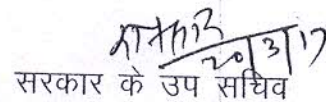 20/3/17
सरकार के उप सचिव